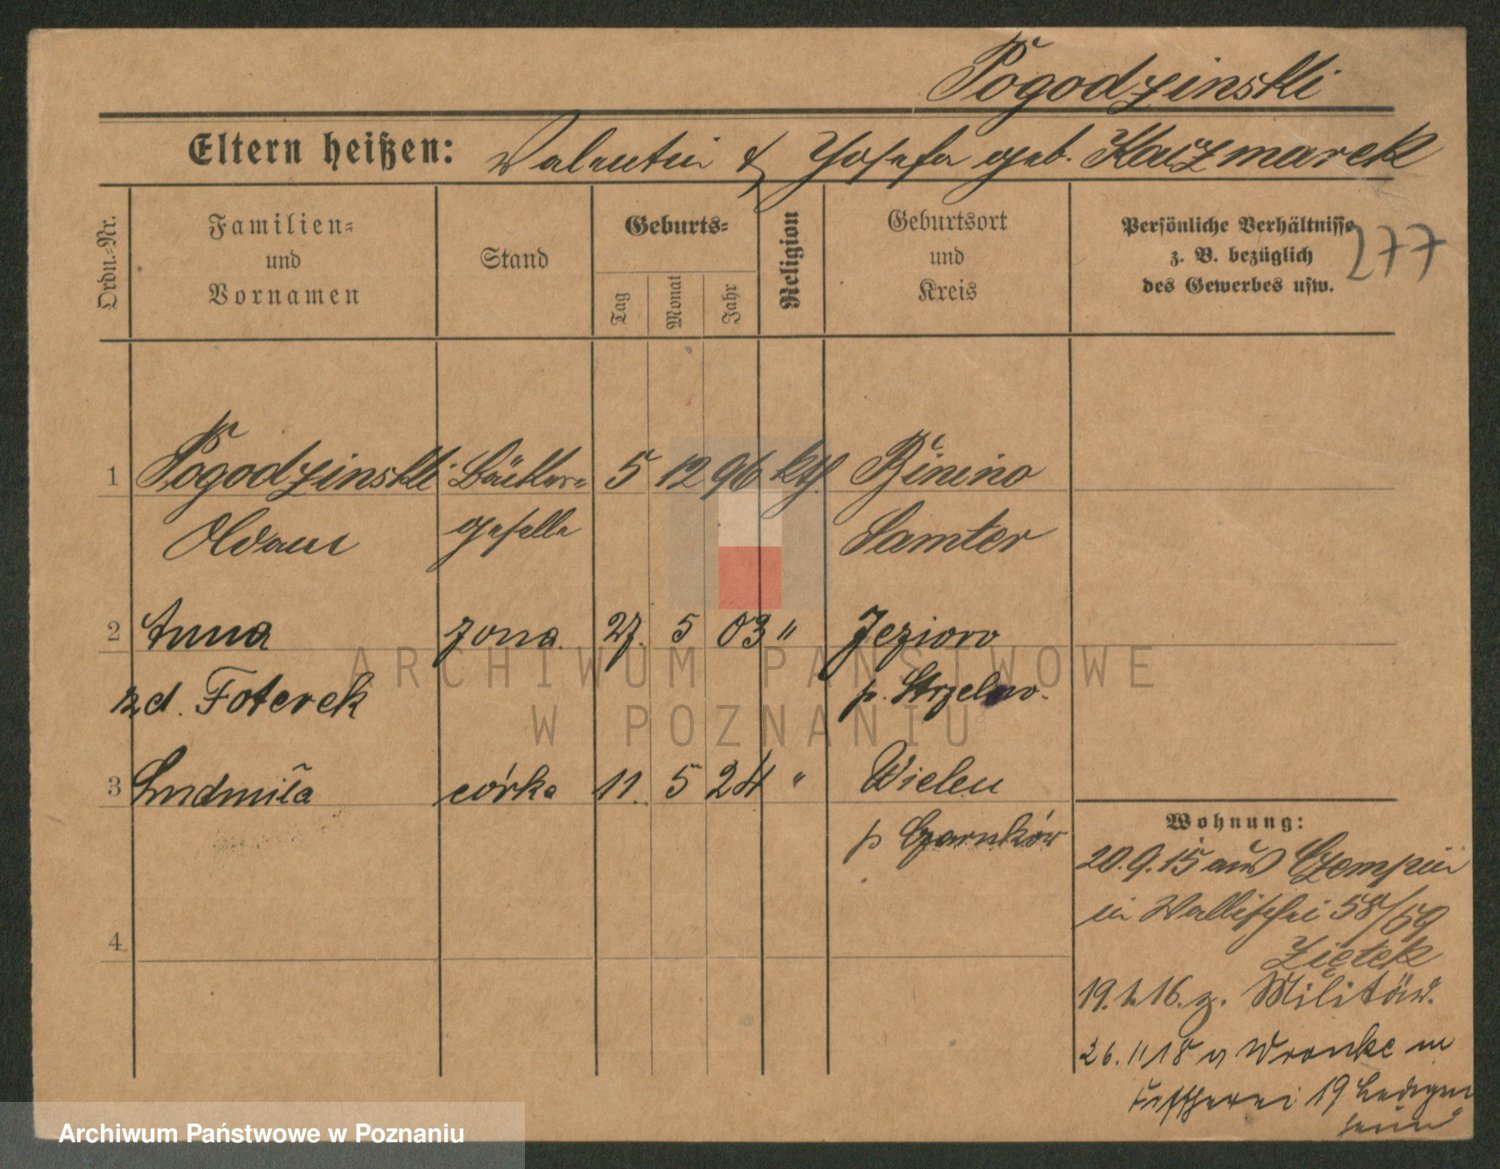 Pogodzinski
Eltern heißen: Valentin & Josefa geb. Kaczmarek
Ordn.-Nr.
Familien-
und
Vornamen
Stand
Geburts-
Tag
Monat
Jahr
Religion
Geburtsort
und
Kreis
Persönliche Verhältnisse
z. B. bezüglich
des Gewerbes usw.
277
1 Pogodzinski Bäcker- 5 12 96 kth. Binino
Adam geselle Samter
2 Anna żona 27. 5 03 " Jezioro
zd. Foterek p. Strzelno.
3 Ludmiła córka 11. 5 24 " Wieleń
p Czarnków
4
Wohnung:
20.9.15 aus Czempin
in Wallischei 58/59
Ziętek
19.1.16. z. Militär.
26.11 18 v Wronke in
19
ARCHIWUM PAŃSTWOWE
W POZNANIU
Archiwum Państwowe w Poznaniu